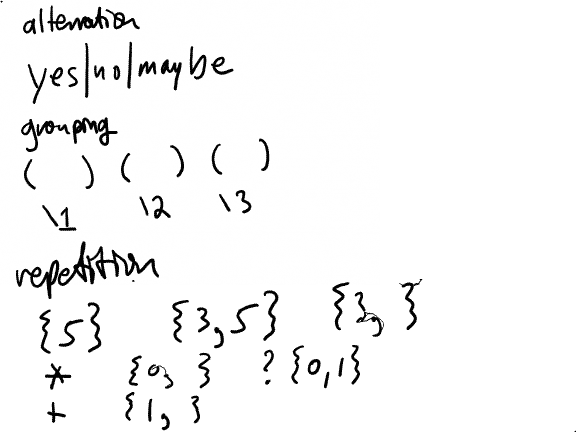 alternation
yes|no|maybe
grouping
( ) ( ) ( )
\1 \2 \3
repetition
{5} {3,5} {3, }
* {0, } ? {0,1}
+ {1, }